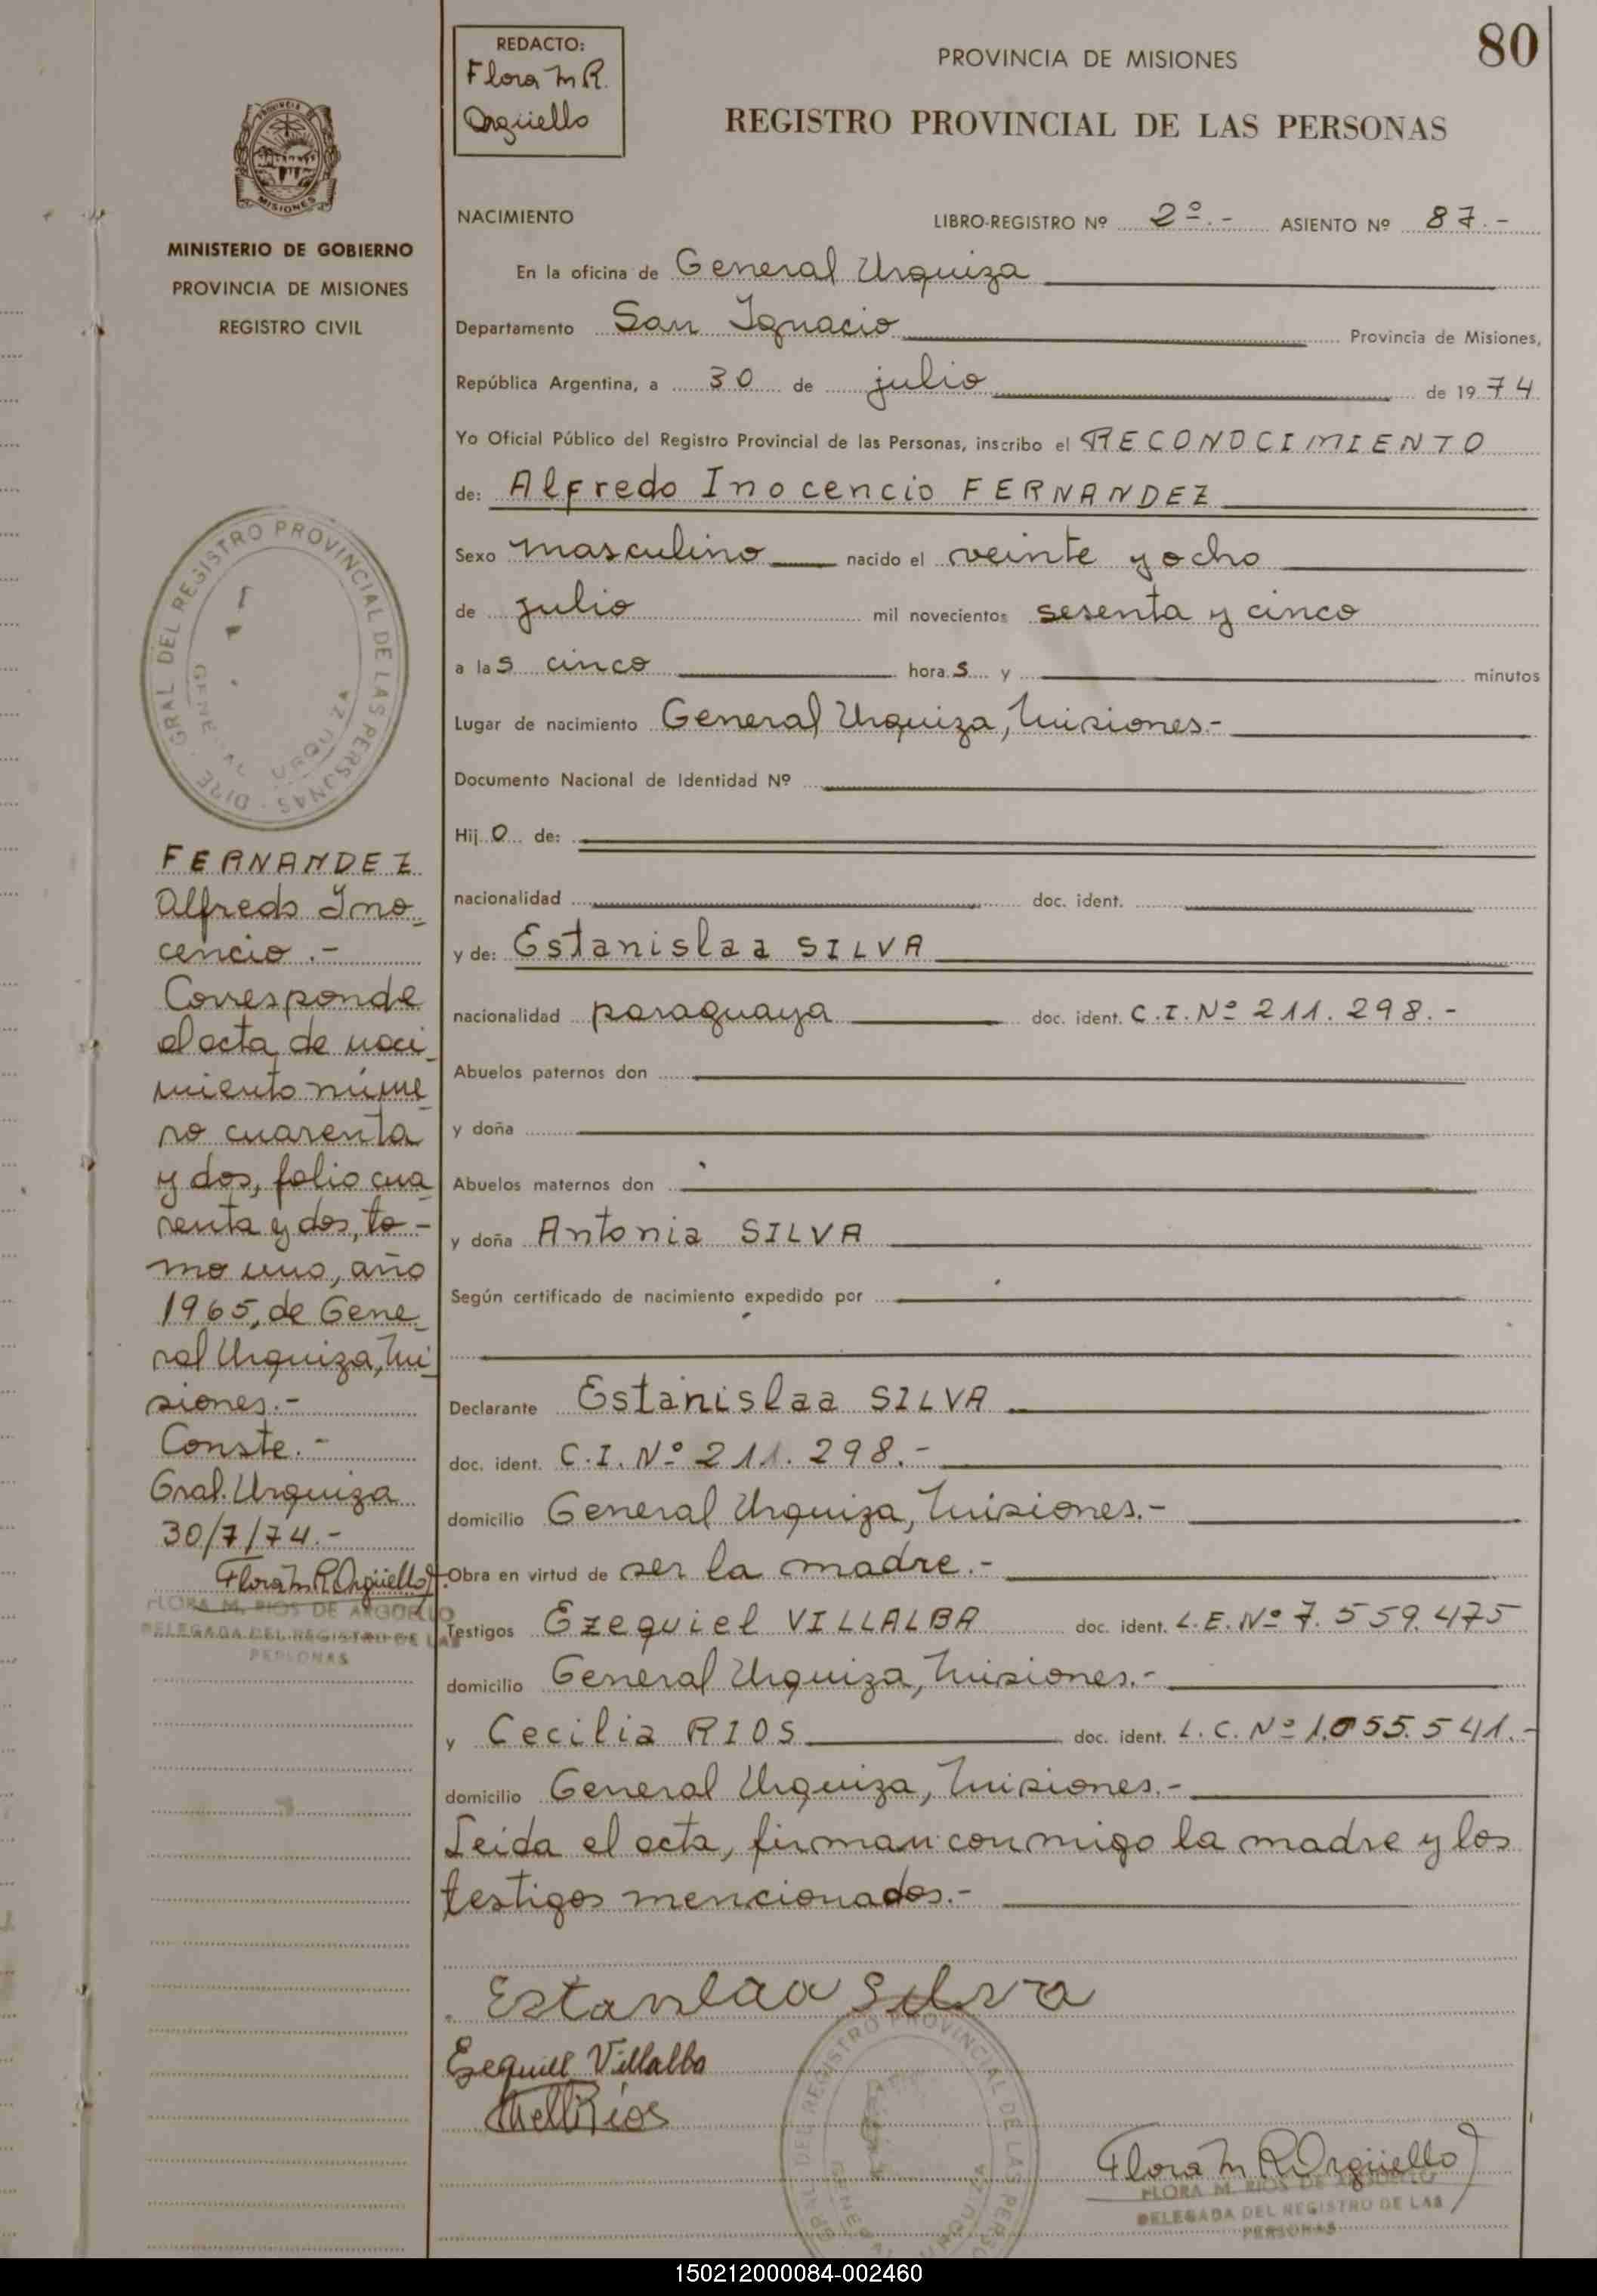 80
REDACTO:
Flora M R.
Orgüello
PROVINCIA DE MISIONES
REGISTRO PROVINCIAL DE LAS PERSONAS
MISIONES
MINISTERIO DE GOBIERNO
PROVINCIA DE MISIONES
REGISTRO CIVIL
NACIMIENTO LIBRO-REGISTRO Nº 2º.- ASIENTO Nº 87.-
En la oficina de General Urquiza
Departamento San Ignacio Provincia de Misiones,
República Argentina, a 30 de julio de 1974.
Yo Oficial Público del Registro Provincial de las Personas, inscribo el RECONOCIMIENTO
de: Alfredo Inocencio FERNANDEZ
Sexo masculino nacido el veinte y ocho
de julio mil novecientos sesenta y cinco
a las cinco horas y minutos
Lugar de nacimiento General Urquiza, Misiones.-
Documento Nacional de Identidad Nº
Hijo de:
nacionalidad doc. ident.
y de: Estanislaa SILVA
nacionalidad paraguaya doc. ident. C.I.Nº 211.298.-
Abuelos paternos don
y doña
Abuelos maternos don
y doña Antonia SILVA
Según certificado de nacimiento expedido por
Declarante Estanislaa SILVA
doc. ident. C.I.Nº 211.298.-
domicilio General Urquiza, Misiones.-
Obra en virtud de ser la madre.-
Testigos Ezequiel VILLALBA doc. ident. L.E.Nº 7.559.475
domicilio General Urquiza, Misiones.-
y Cecilia RIOS doc. ident. L.C.Nº 1.055.541.-
domicilio General Urquiza, Misiones.-
Leida el acta, firman conmigo la madre y los
testigos mencionados.-
DIRE GRAL DEL REGISTRO PROVINCIAL DE LAS PERSONAS
GENERAL URQUIZA
FERNANDEZ
Alfredo Ino
cencio.-
Corresponde
al acta de naci
miento núme
ro cuarenta
y dos, folio cua
renta y dos, to-
mo uno, año
1965, de Gene
ral Urquiza, Mi
siones.-
Conste.-
Gral. Urquiza
30/7/74.-
Flora M R Orgüello
FLORA M. RIOS DE ARGUELLO
DELEGADA DEL REGISTRO DE LAS
PERSONAS
Estanslaa Silva
Ezequiel Villalba
Rios
Flora M R Orgüello
FLORA M. RIOS DE ARGUELLO
DELEGADA DEL REGISTRO DE LAS
PERSONAS
150212000084-002460